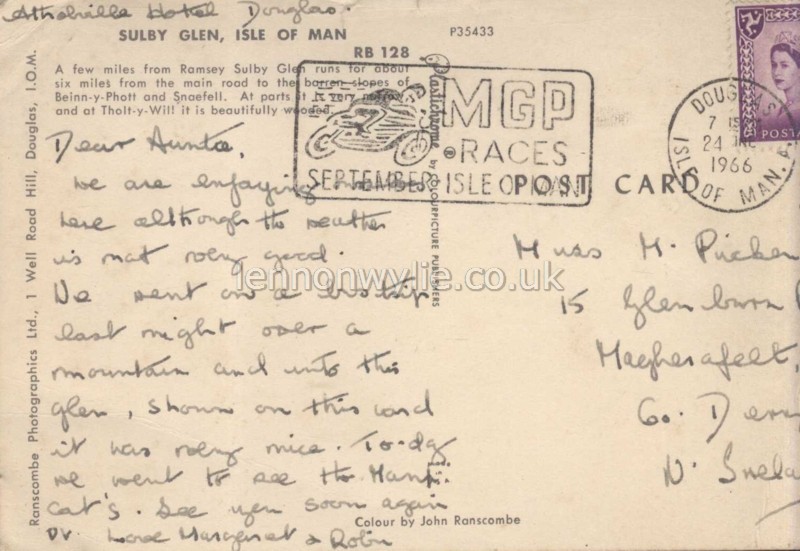 Hotel Douglas
SULBY GLEN, ISLE OF MAN
P35433
RB 128
A few miles from Ramsey Sulby Glen runs for about
six miles from the main road to the barren slopes of
Beinn-y-Phott and Snaefell. At parts it is very
and at Tholt-y-Will it is beautifully wooded.
Dear Auntie,
We are enjoying
here although the weather
is not very good.
We went on a bus trip
last night over a
mountain and into this
glen, shown on this card
it was very nice. To-day
we went to see the Manx
cat's. See you soon again
DV. Love Margaret & Robin
MGP
RACES
SEPTEMBER ISLE OF MAN
DOUGLAS
7
24
1966
ISLE OF MAN
POSTA
POST CARD
Miss M.
15 Glenburn
Magherafelt,
Co. Derr
N. Irela
Plastichrome ® by COLOURPICTURE PUBLISHERS
Ranscombe Photographics Ltd., 1 Well Road Hill, Douglas, I.O.M.
Colour by John Ranscombe
lennonwylie.co.uk